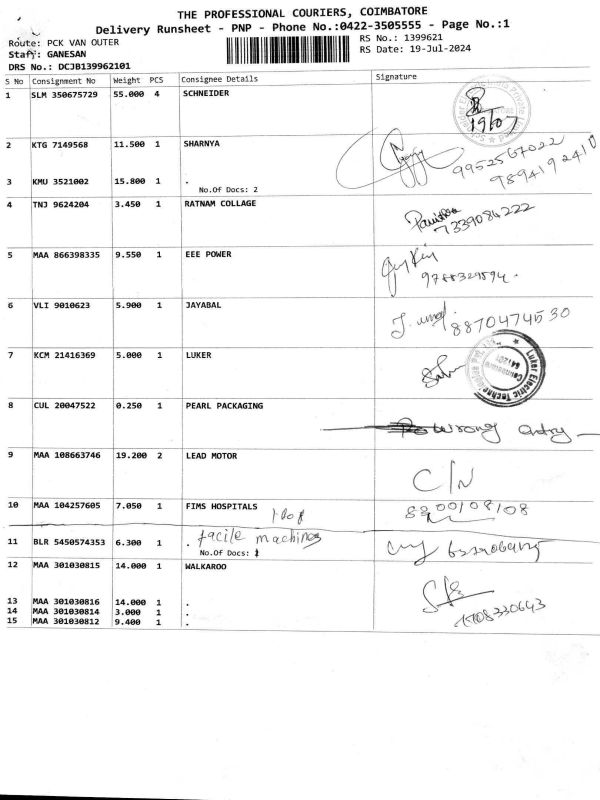 THE PROFESSIONAL COURIERS, COIMBATORE
Delivery Runsheet - PNP - Phone No.:0422-3505555 - Page No.:1
Route: PCK VAN OUTER
RS No.: 1399621
Staff: GANESAN
RS Date: 19-Jul-2024
DRS No.: DCJB139962101
S No Consignment No Weight PCS Consignee Details Signature
1 SLM 350675729 55.000 4 SCHNEIDER
19/07
2 KTG 7149568 11.500 1 SHARNYA
9952567022
9894192410
3 KMU 3521002 15.800 1 .
No.Of Docs: 2
4 TNJ 9624204 3.450 1 RATNAM COLLAGE
7339084222
5 MAA 866398335 9.550 1 EEE POWER
6 VLI 9010623 5.900 1 JAYABAL
8870474530
7 KCM 21416369 5.000 1 LUKER
Luker Electric Technologies Pvt. Ltd.
8 CUL 20047522 0.250 1 PEARL PACKAGING
wrong entry
9 MAA 108663746 19.200 2 LEAD MOTOR
C/N
10 MAA 104257605 7.050 1 FIMS HOSPITALS
8300108108
11 BLR 5450574353 6.300 1 . facile machines
No.Of Docs: 1
12 MAA 301030815 14.000 1 WALKAROO
13 MAA 301030816 14.000 1 .
14 MAA 301030814 3.000 1 .
15 MAA 301030812 9.400 1 .